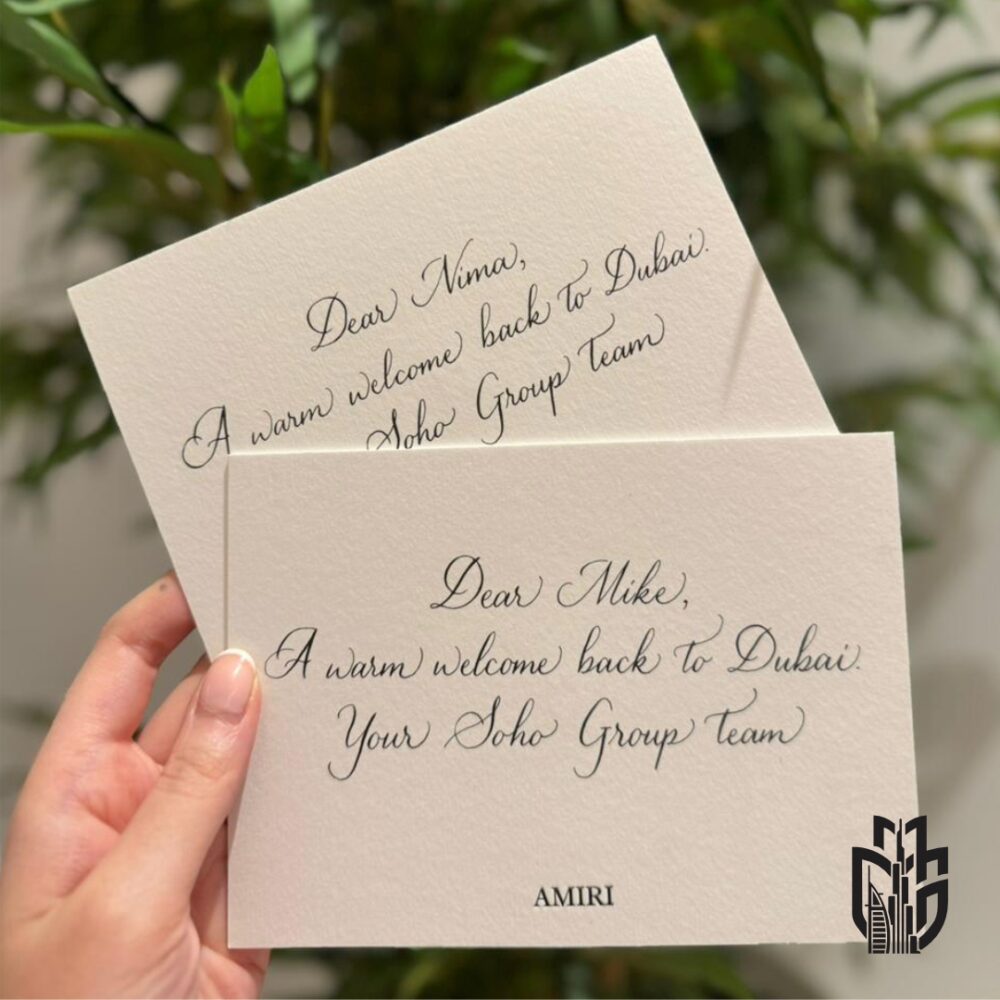 Dear Nima,
A warm welcome back to Dubai.
Soho Group Team
Dear Mike,
A warm welcome back to Dubai.
Your Soho Group Team
AMIRI